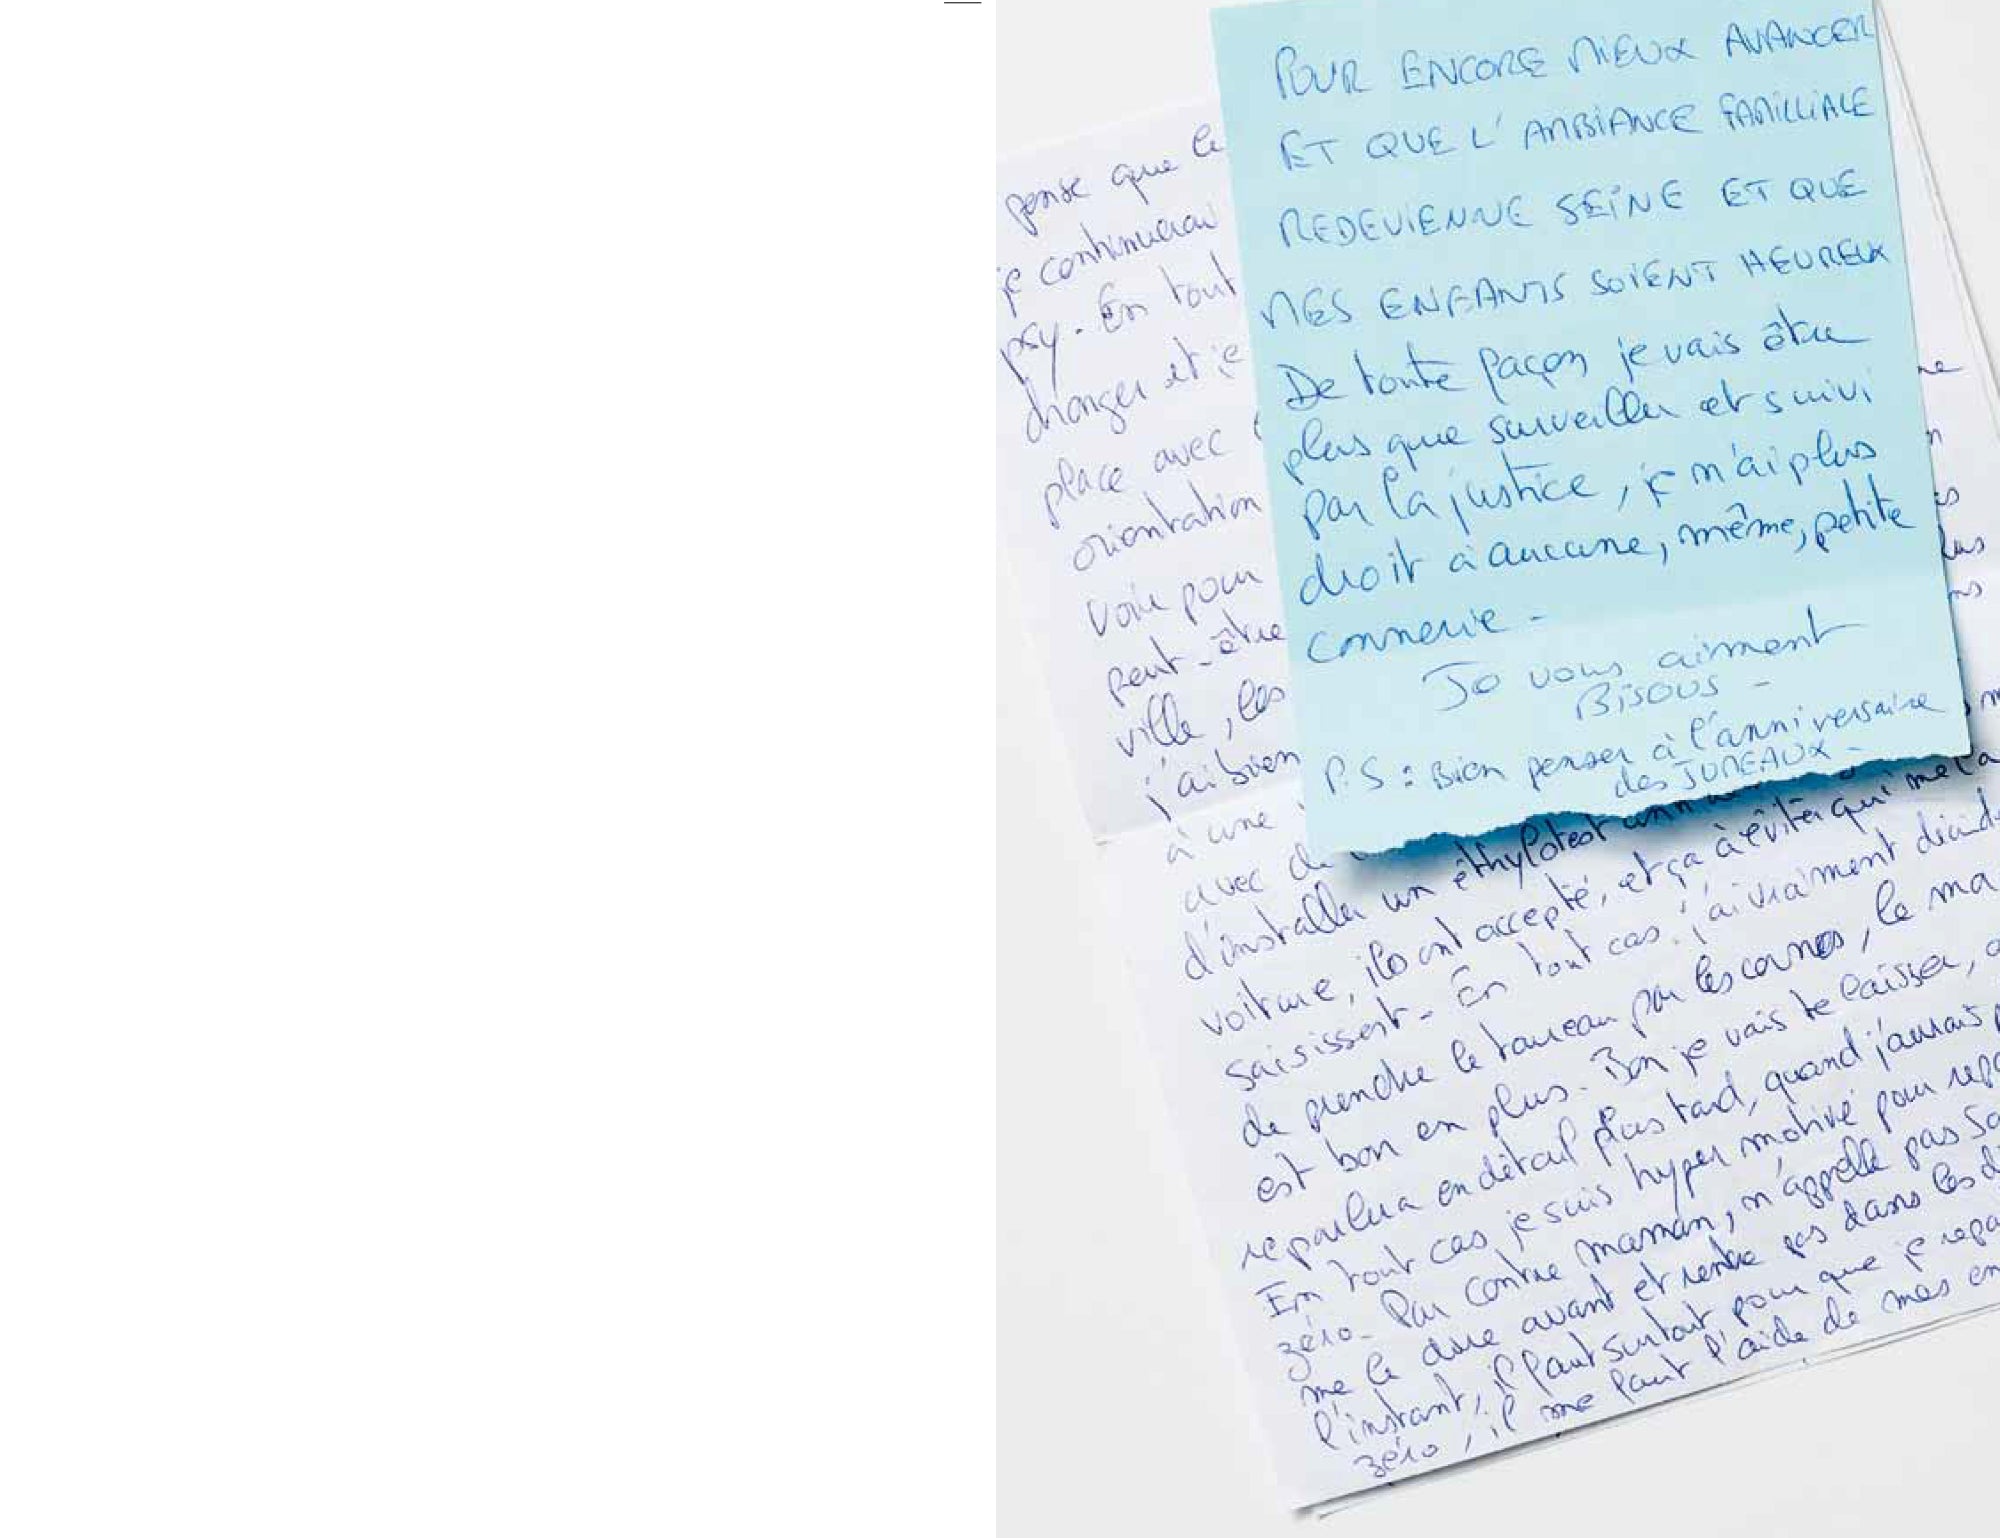 POUR ENCORE MIEUX AVANCER
ET QUE L'AMBIANCE FAMILLIALE
REDEVIENNE SEINE ET QUE
MES ENFANTS SOIENT HEUREUX
De toute façon je vais être
plus que surveiller et suivi
par la justice, je n'ai plus
droit à aucune, même, petite
connerie -
Jo vous aiment
BISOUS -
P.S : Bien penser à l'anniversaire
des JUMEAUX -
pense que le
je continuerai
psy. En tout
changer et je
place avec
orientation
voir pour
peut-être
ville, les
j'ai bien
à une
avec de
d'installer un éthylotest
voiture, ils ont accepté, et ça à éviter qu'i me la
saisissent - En tout cas j'ai vraiment
de prendre le taureau par les cornes, le
est bon en plus. Bon je vais te laisser,
reparlera en détail plus tard, quand j'aurais
En tout cas je suis hyper motivé pour
zéro. Par contre maman, n'appelle pas
me le dire avant et rentre pas dans les
l'instant, il faut surtout pour que je
zéro, il me faut l'aide de mes